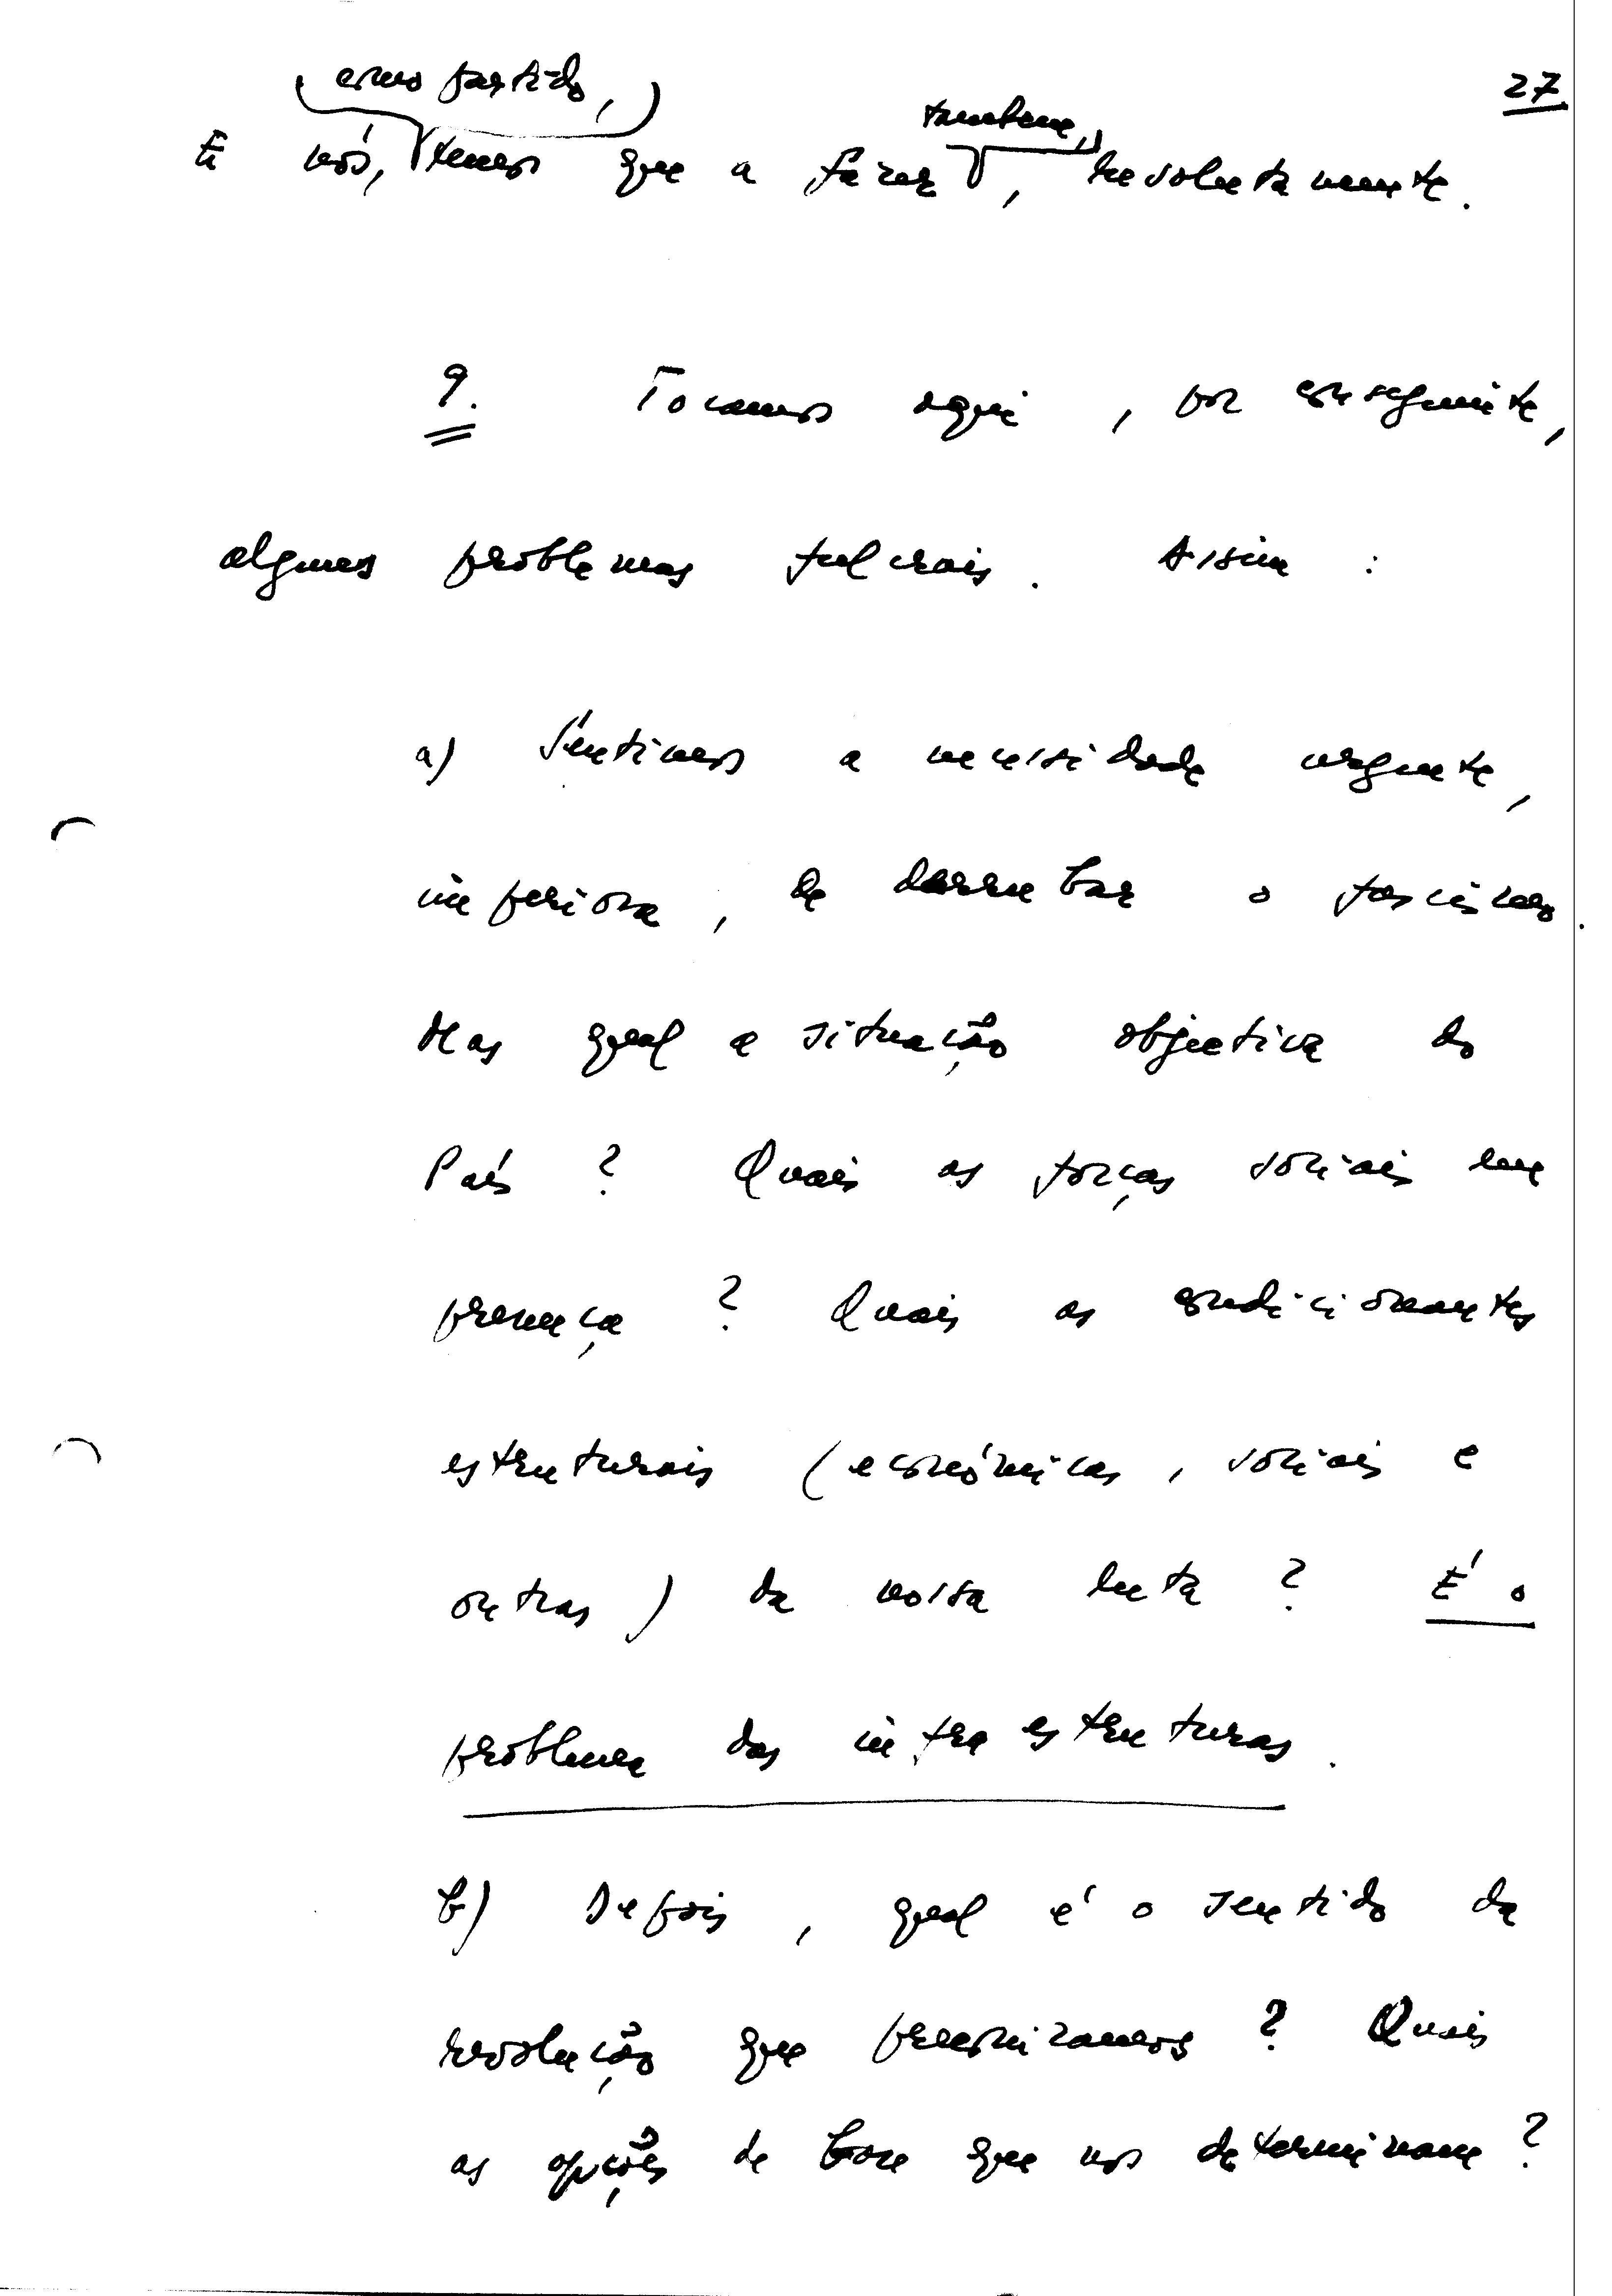 27
como partido,
também,
E nós, temos que a fazer, resolutamente.
9. Tocamos aqui, por conseguinte,
alguns problemas fulcrais. Assim:
a) Sentimos a necessidade urgente,
imperiosa, de derrubar o fascismo.
Mas qual a situação objectiva do
País? Quais as forças sociais em
presença? Quais as condicionantes
estruturais (económicas, sociais e
outras) da nossa luta? É o
problema das infraestruturas.
b) Depois, qual é o sentido da
revolução que preconizamos? Quais
as opções de base que nos determinam?